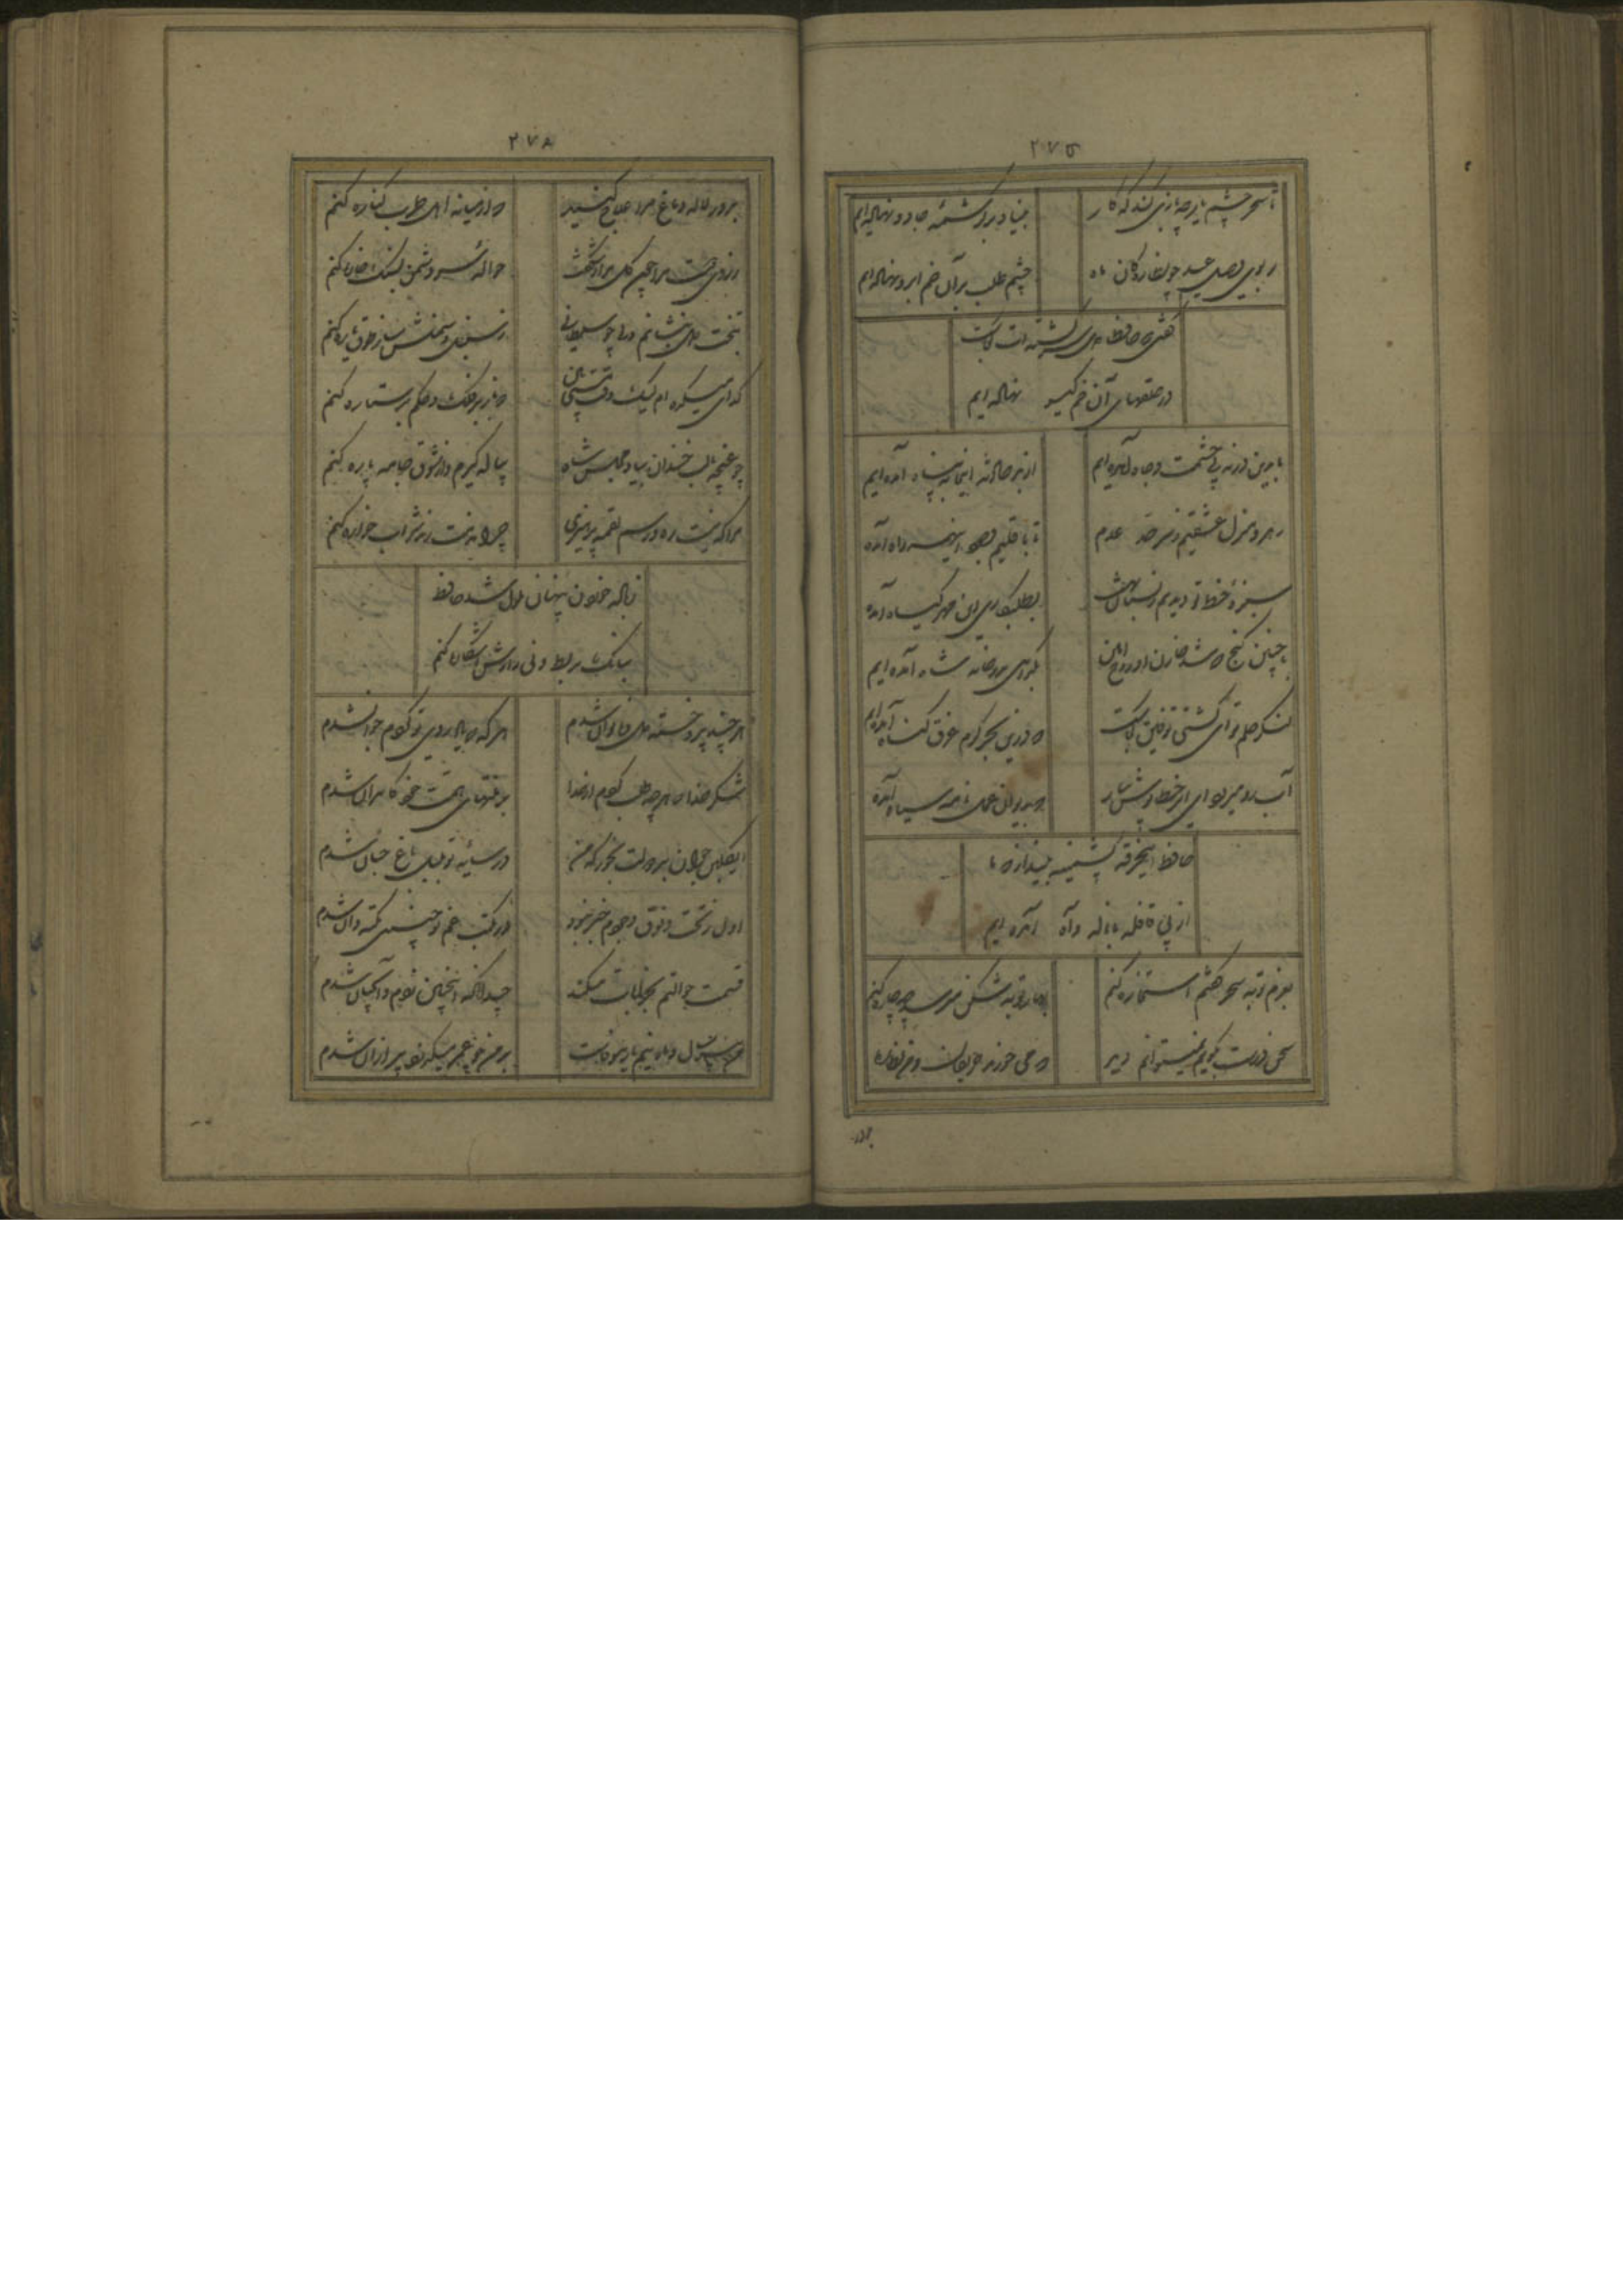 ۲۷۵
تا سحر چشم یار چه بازی کند که کار
بنیاد بر کرشمه جادو نهاده‌ایم
بر بوی وصل عید چو نظارگان ماه
چشم طلب بر آن خم ابرو نهاده‌ایم
گفتی که حافظا دل سرگشته‌ات کجاست
در حلقهای آن خم گیسو نهاده ایم
ما بدین در نه پی حشمت و جاه آمده ایم
از بد حادثه اینجا به پناه آمده ایم
رهرو منزل عشقیم و ز سرحد عدم
تا باقلیم وجود اینهمه راه آمده
سبزه خط تو دیدیم و ز بستان بهشت
بطلبکاری این مهر گیاه آمده
با چنین گنج که شد خازن او روح امین
بگدایی بدر خانه شاه آمده ایم
لنگر حلم تو ای کشتی توفیق کجاست
که درین بحر کرم غرق گناه آمده ایم
آب رو میرود ای ابر خطا پوش ببار
که بدیوان عمل نامه سیاه آمده
حافظ این خرقه پشمینه بینداز که ما
از پی قافله با ناله و آه آمده ایم
بعزم توبه سحر گفتم استخاره کنم
بهار توبه شکن میرسد چه چاره کنم
سخن درست بگویم نمیتوانم دید
که می خورند حریفان و من نظاره
بدور
۲۷۸
بدور لاله دماغ مرا علاج کنید
گر از میانه اهل طرب کناره کنم
ز روی دوست مرا چون گل مراد شکفت
حواله سر دشمن بسنگ خاره کنم
بتخت گل بنشانم بتی چو سلطانی
ز سنبل و سمنش ساز طوق و یاره کنم
گدای میکده ام لیک وقت مستی بین
که ناز بر فلک و حکم بر ستاره کنم
چو غنچه با لب خندان بیاد مجلس شاه
پیاله گیرم و از شوق جامه پاره کنم
مرا که نیست ره و رسم لقمه پرهیزی
چرا مذمت رند شراب خواره کنم
ز باده خوردن پنهان ملول شد حافظ
ببانگ بربط و نی رازش آشکاره کنم
هر چند پیر و خسته دل و ناتوان شدم
هر گه که یاد روی تو کردم جوان شدم
شکر خدا که هر چه طلب کردم از خدا
بر منتهای همت خود کامران شدم
ای گلبن جوان بر دولت بخور که من
در سایه تو بلبل باغ جهان شدم
اول ز تحت و فوق وجودم خبر نبود
در مکتب غم تو چنین نکته دان شدم
قسمت حوالتم بخرابات میکند
چندانکه اینچنین شدم و آنچنان شدم
من پیر سال و ماه نیم یار بیوفاست
بر من چو عمر میگذرد پیر از آن شدم